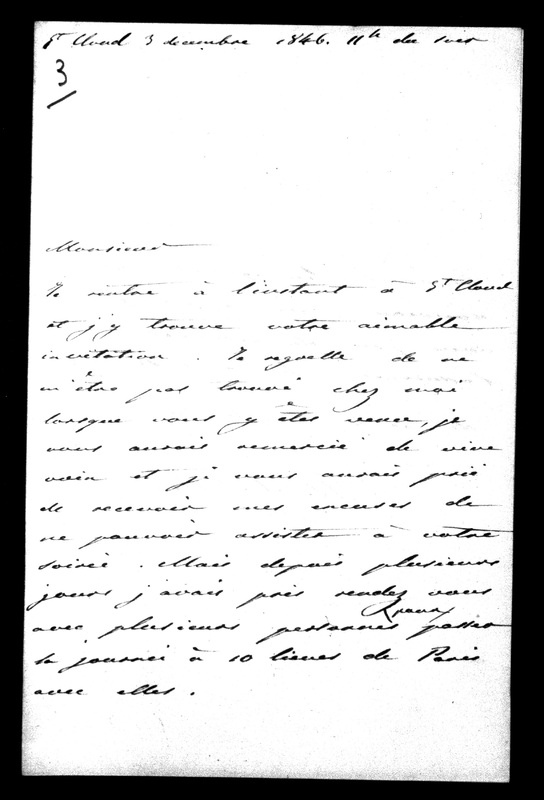 St Cloud 3 decembre 1846. 11h du soir
3
Monsieur
Je rentre à l'instant à St Cloud
et j'y trouve votre aimable
invitation. Je regrette de ne
m'être pas trouvé chez moi
lorsque vous y êtes venu, je
vous aurais remercié de vive
voix et je vous aurais prié
de recevoir mes excuses de
ne pouvoir assister à votre
soirée. Mais depuis plusieurs
jours j'avais pris rendez vous
avec plusieurs personnes passer
la journée à 10 lieues de Paris
avec elles.